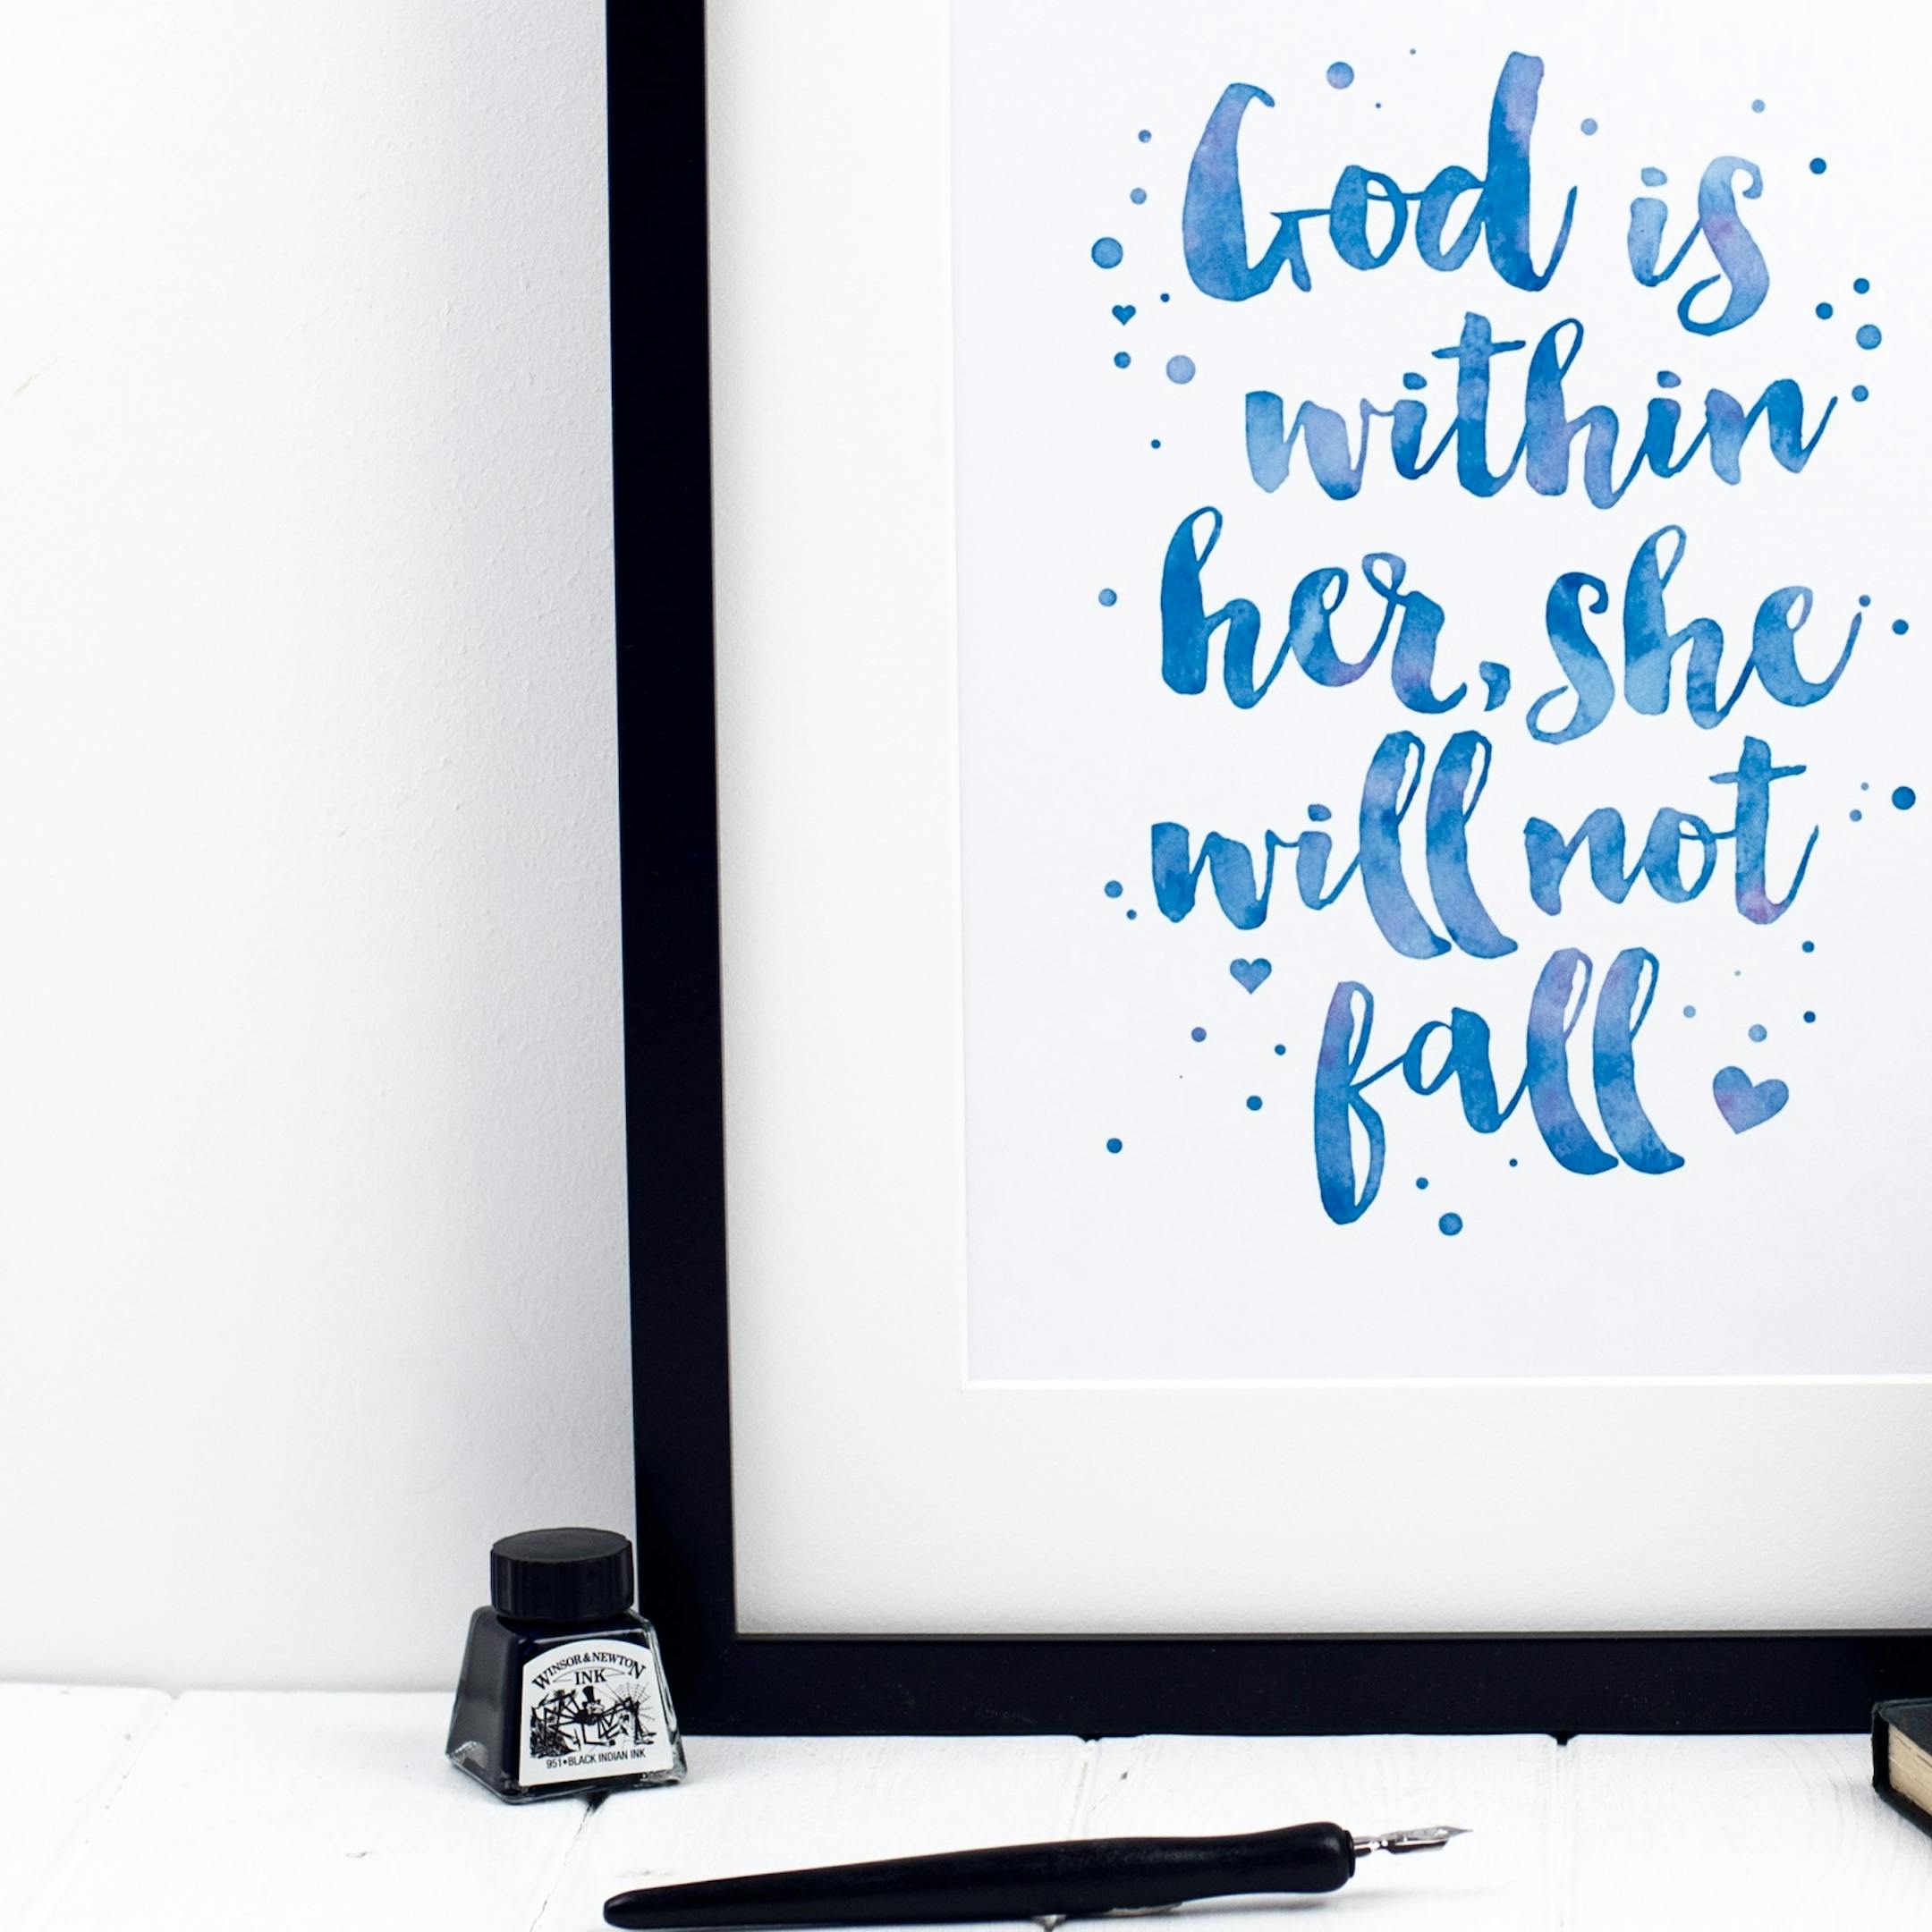 God is
within
her, she
will not
fall
WINSOR & NEWTON
INK
951•BLACK INDIAN INK